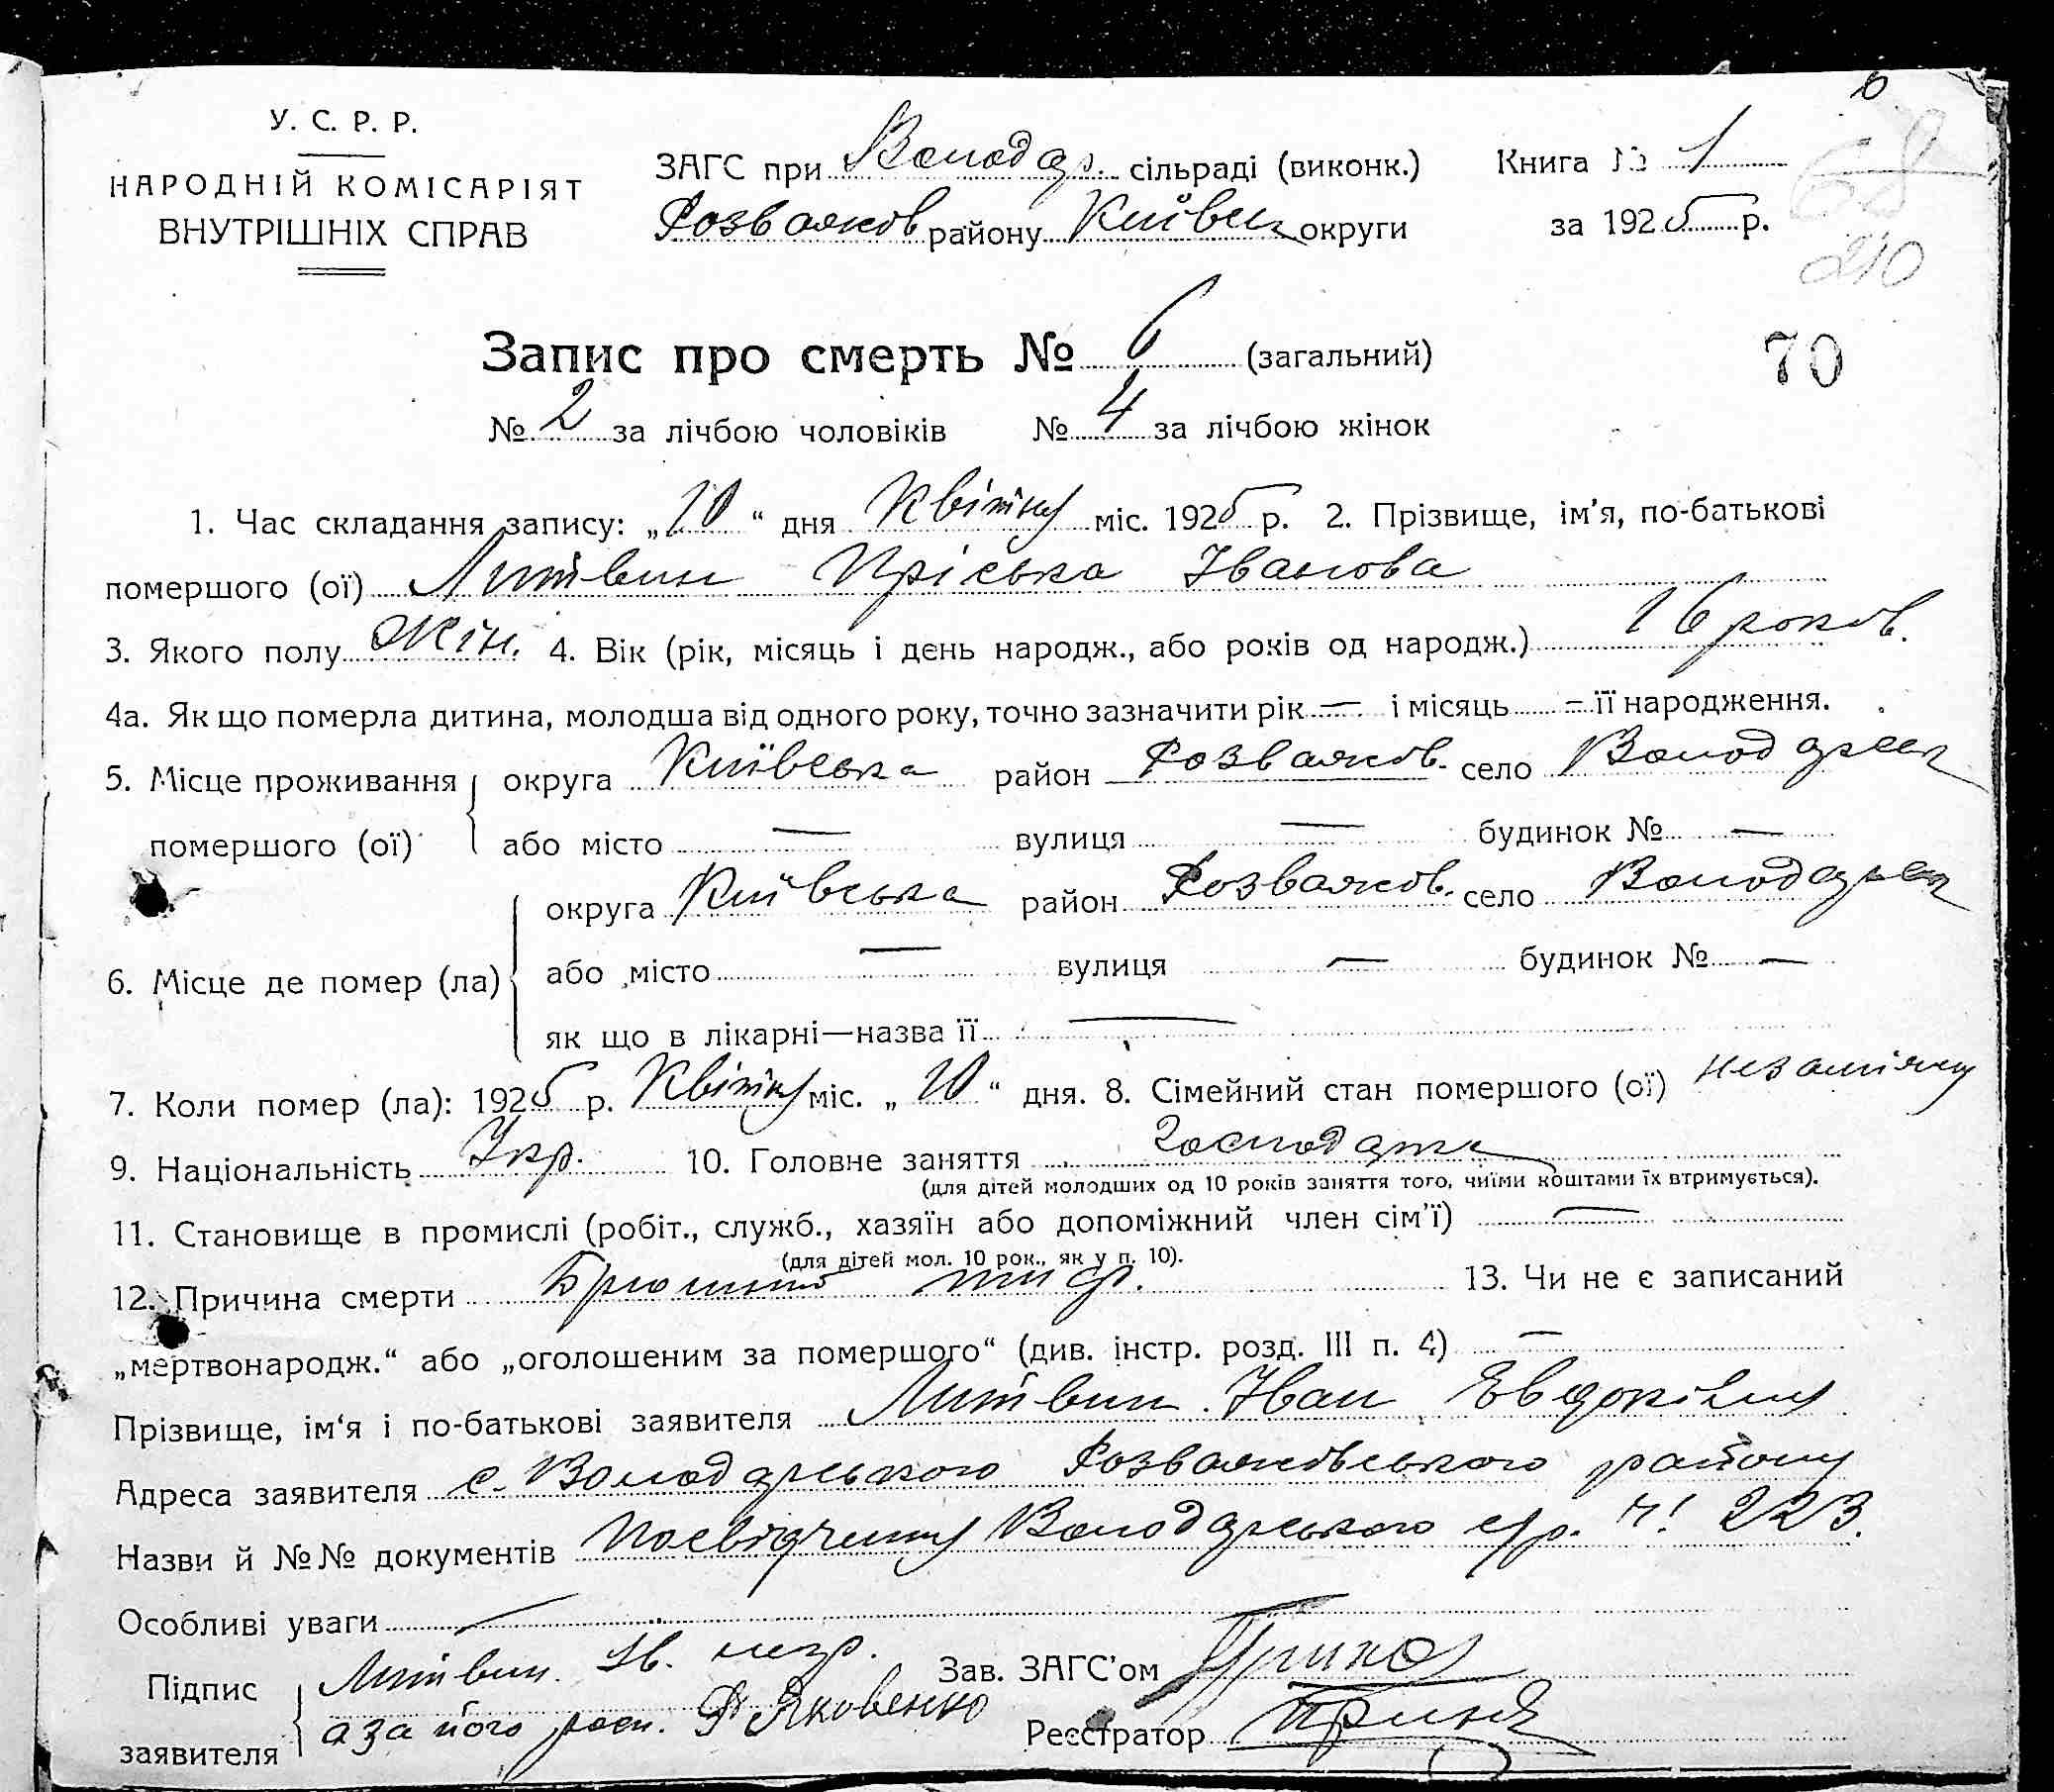 6
У. С. Р. Р.
НАРОДНІЙ КОМІСАРІЯТ
ВНУТРІШНІХ СПРАВ
ЗАГС при Володар. сільраді (виконк.)
Розважів району Київськ округи
Книга № 1
за 1925 р.
68
210
Запис про смерть № 6 (загальний)
70
№ 2 за лічбою чоловіків № 4 за лічбою жінок
1. Час складання запису: „10“ дня Квітня міс. 1925 р. 2. Прізвище, ім’я, по-батькові
помершого (ої) Литвин Пріська Іванова
3. Якого полу Жін. 4. Вік (рік, місяць і день народж., або років од народж.) 16 років.
4а. Як що померла дитина, молодша від одного року, точно зазначити рік — і місяць — її народження.
5. Місце проживання помершого (ої) округа Київська район Розважів. село Володарськ
або місто — вулиця — будинок № —
6. Місце де помер (ла) округа Київська район Розважів. село Володарськ
або місто — вулиця — будинок № —
як що в лікарні—назва її —
7. Коли помер (ла): 1925 р. Квітня міс. „10“ дня. 8. Сімейний стан помершого (ої) незаміжня
9. Національність Укр. 10. Головне заняття
(для дітей молодших од 10 років заняття того, чиїми коштами їх втримується).
11. Становище в промислі (робіт., служб., хазяїн або допоміжний член сім’ї) —
(для дітей мол. 10 рок., як у п. 10).
12. Причина смерти Брюшний тиф. 13. Чи не є записаний
„мертвонародж.“ або „оголошеним за помершого“ (див. інстр. розд. III п. 4) —
Прізвище, ім‘я і по-батькові заявителя Литвин Іван
Адреса заявителя с. Володарського Розважівського району
Назви й №№ документів Посвідчення Володарського с/р. Ч! 223.
Особливі уваги —
Підпис заявителя Литвин Ів. негр.
а за його росп. Яковенко
Зав. ЗАГС’ом
Реєстратор